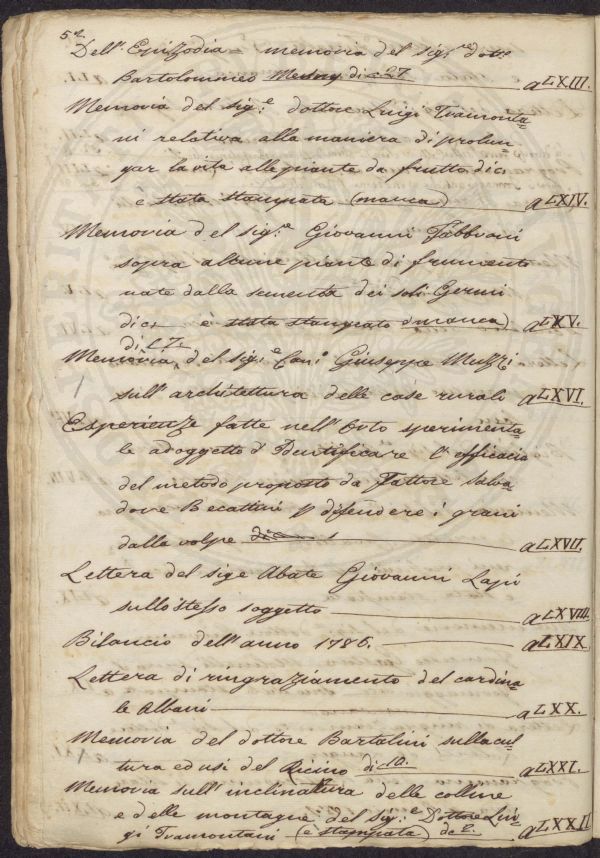 52
Dell'Epizzodia = memoria del sig.re dott.e
Bartolommeo Mesny di 27. a LXIII.
Memoria del sig.e dottore Luigi Tramonta-
ni relativa alla maniera di prolun-
gar la vita alle piante da frutto, di c.
e stata stampata (manca) a LXIV.
Memoria del sig.e Giovanni Fabbroni
sopra alcune piante di frumento
nate dalla sementa dei soli Germi
di c. e stata stampato (manca) a LXV.
di c. 7.
Memoria, del sig.e Can.o Giuseppe Muzzi
sull'architettura delle case rurali a LXVI.
Esperienze fatte nell'Orto sperimenta-
le adoggetto d'Identificare l'efficacia
del metodo proposto da Fattore Salva-
dore Becattini p difendere i grani
dalla volpe a LXVII.
Lettera del sig.e Abate Giovanni Lapi
sullo stesso soggetto a LXVIII.
Bilancio dell'anno 1786. a LXIX
Lettera di ringraziamento del cardina-
le Albani a LXX.
Memoria del dottore Bartolini sulla cul-
tura ed usi del Ricino di 10. a LXXI.
Memoria sull'inclinatura delle colline
e delle montagne del sig.e Dottore Lui-
gi Tramontani (è stampata) a LXXII